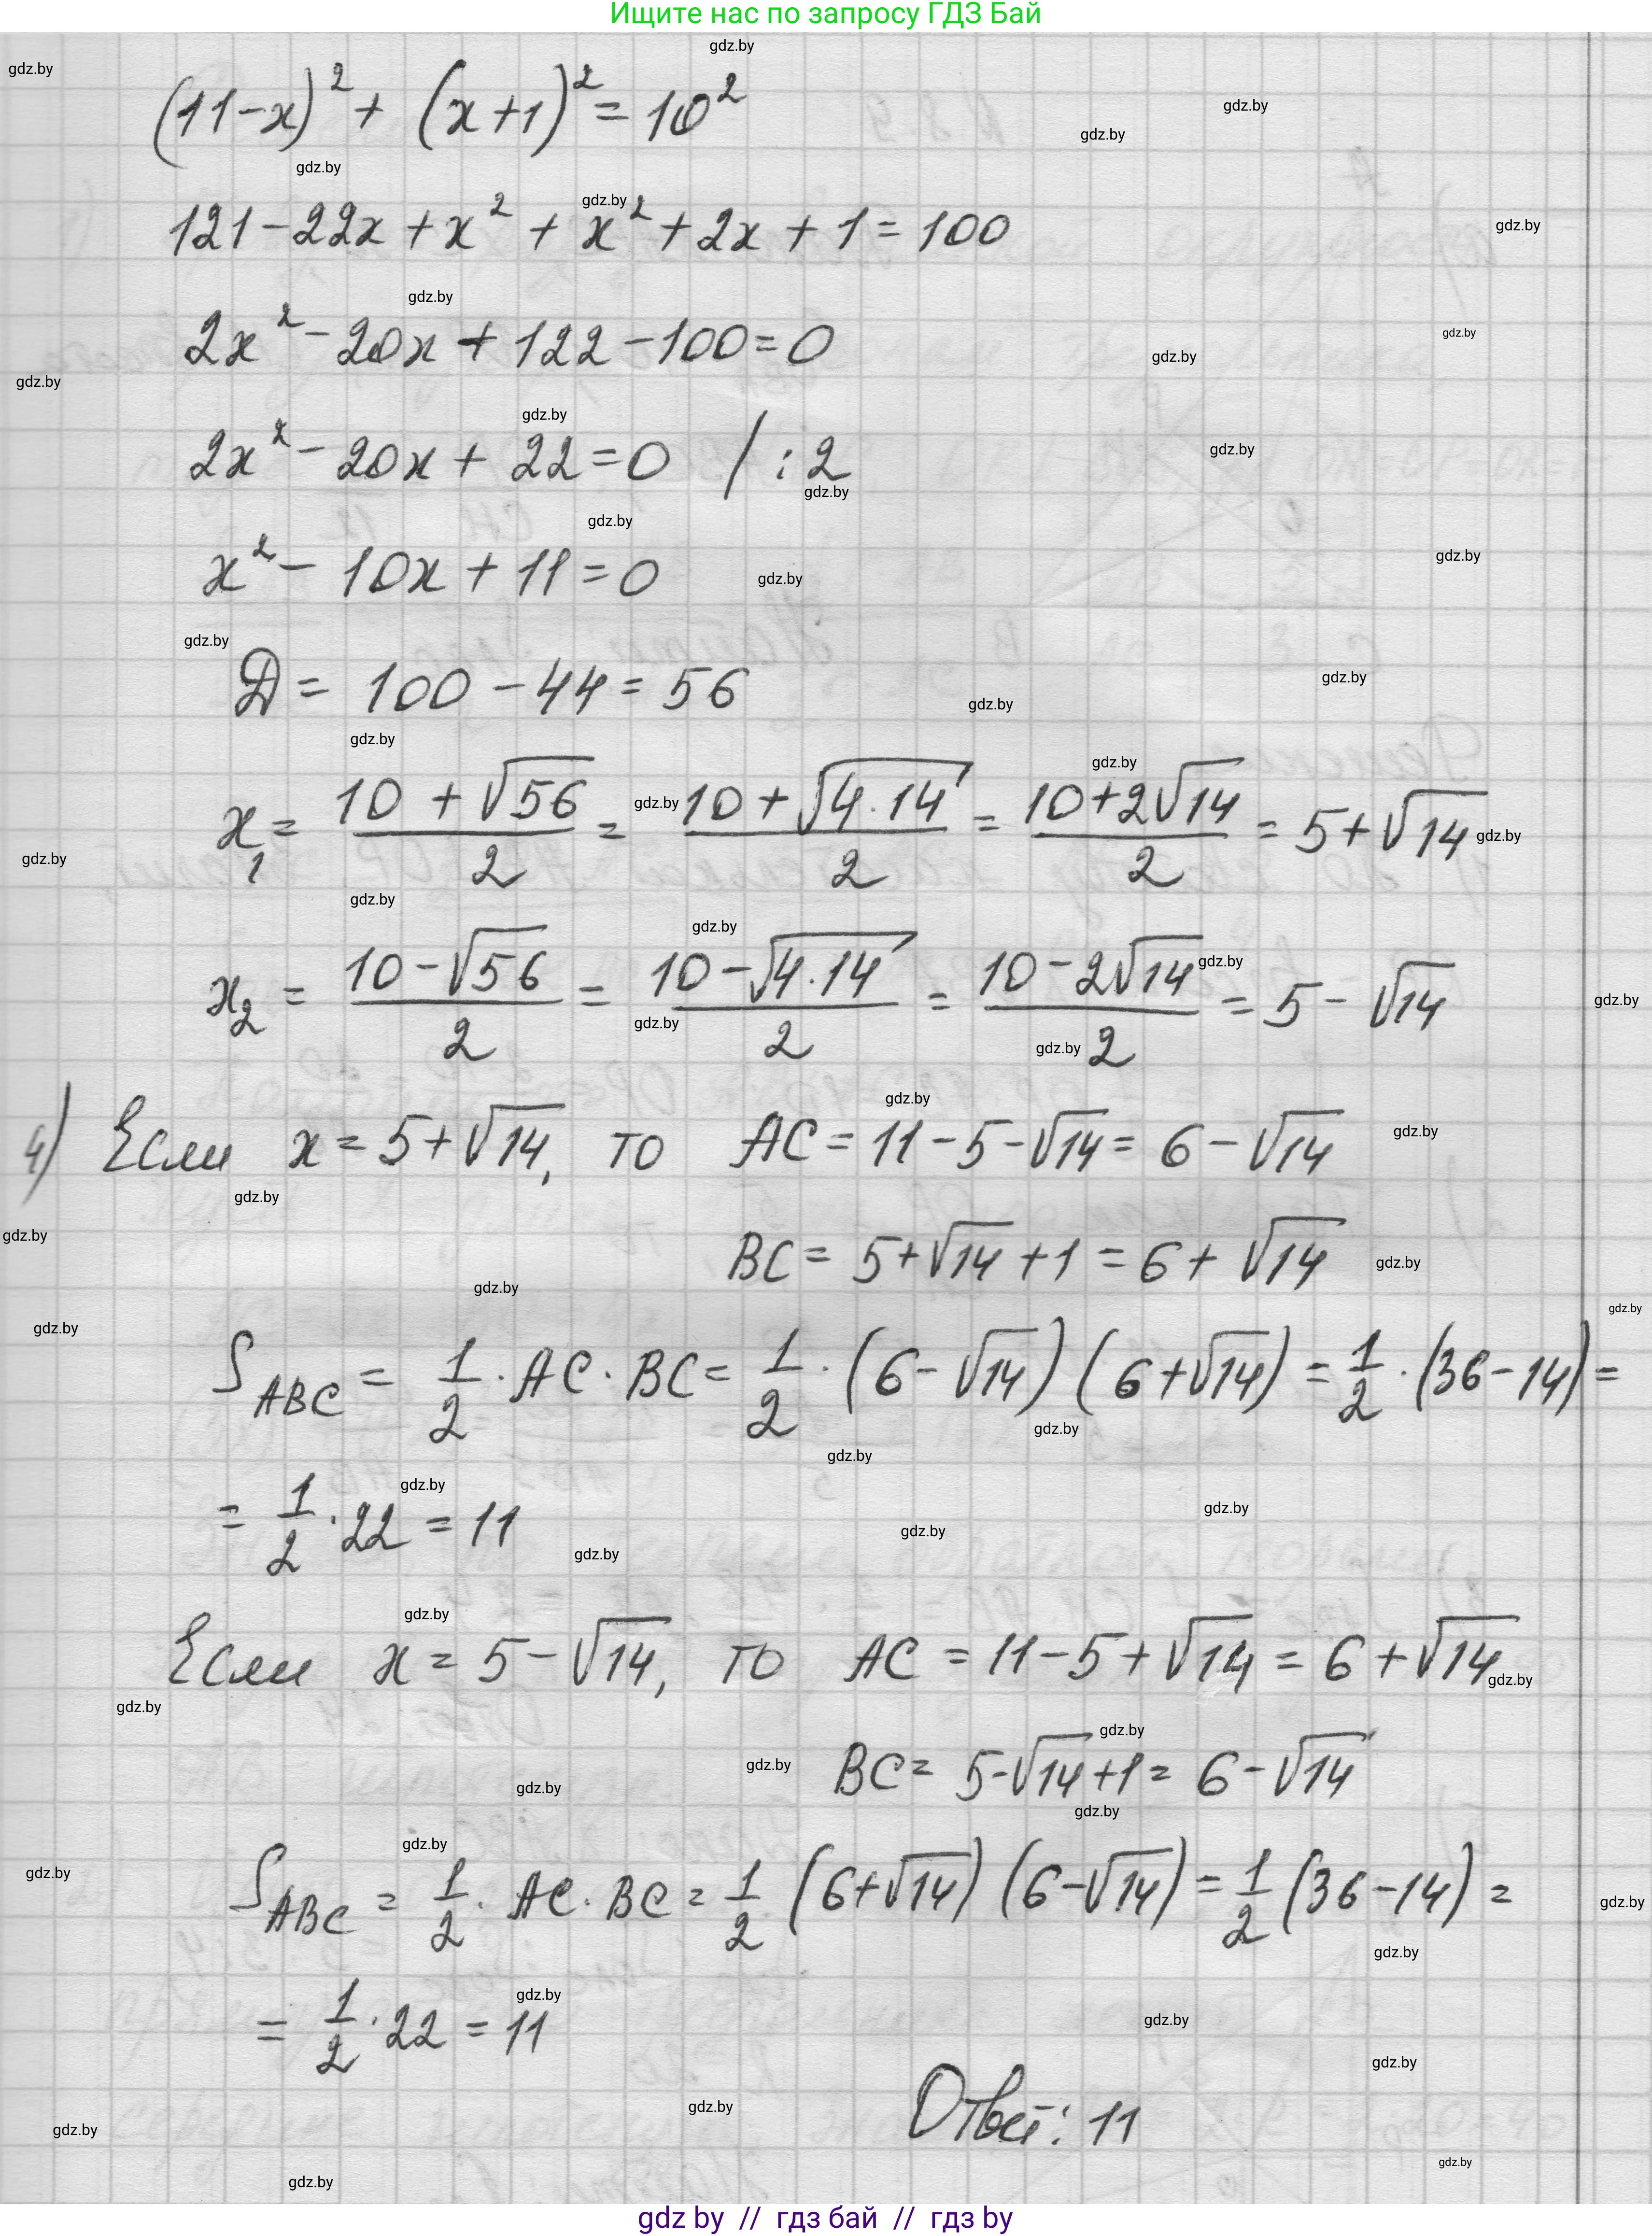 Ищите нас по запросу ГДЗ Бай
(11-x)² + (x+1)² = 10²
121-22x+x² + x²+2x+1=100
2x²-20x+122-100=0
2x²-20x+22=0 / :2
x²-10x+11=0
D = 100-44=56
x₁ = (10+√56)/2 = (10+√(4·14))/2 = (10+2√14)/2 = 5+√14
x₂ = (10-√56)/2 = (10-√(4·14))/2 = (10-2√14)/2 = 5-√14
4) Если x=5+√14, то AC=11-5-√14=6-√14
BC=5+√14+1=6+√14
S_ABC = 1/2·AC·BC = 1/2·(6-√14)(6+√14) = 1/2·(36-14) =
= 1/2·22 = 11
Если x=5-√14, то AC=11-5+√14=6+√14
BC=5-√14+1=6-√14
S_ABC = 1/2·AC·BC = 1/2 (6+√14)(6-√14) = 1/2 (36-14) =
= 1/2·22 = 11
Ответ: 11
gdz by // гдз бай // гдз by